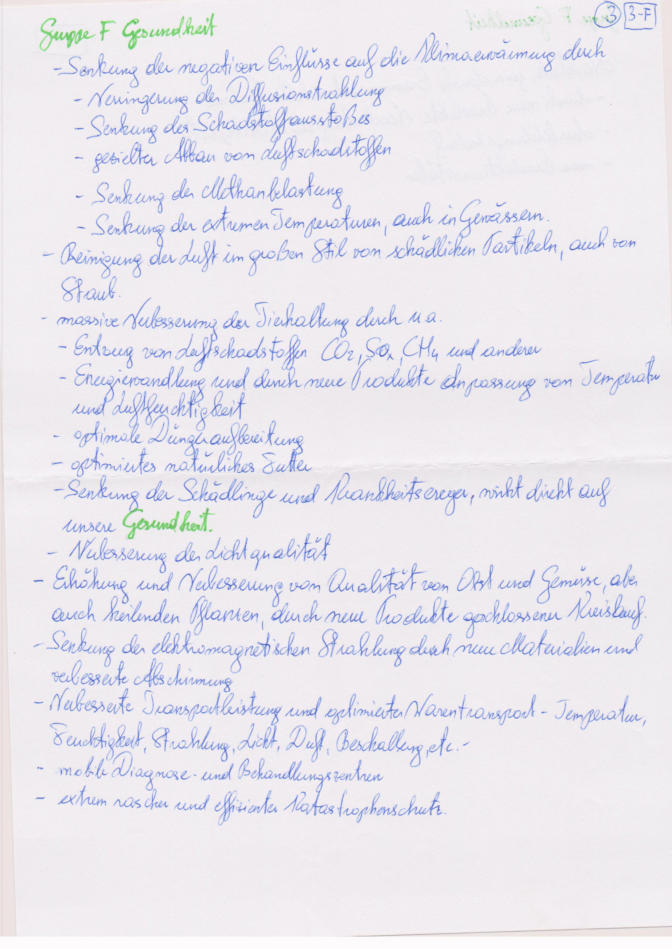 Gruppe F Gesundheit
③ 3-F
- Senkung der negativen Einflüsse auf die Klimaerwärmung durch
- Verringerung der Diffusionstrahlung
- Senkung des Schadstoffausstoßes
- gezielter Abbau von Luftschadstoffen
- Senkung der Methanbelastung
- Senkung der extremen Temperaturen, auch in Gewässern.
- Reinigung der Luft im großen Stil von schädlichen Partikeln, auch von
Staub.
- massive Verbesserung der Tierhaltung durch u.a.
- Entzug von Luftschadstoffen CO2, SO2, CH4 und anderer
- Energiewandlung und durch neue Produkte Anpassung von Temperatur
und Luftfeuchtigkeit
- optimale Düngeraufbereitung
- optimiertes natürliches Futter
- Senkung der Schädlinge und Krankheitserreger, wirkt direkt auf
unsere Gesundheit.
- Verbesserung der Lichtqualität
- Erhöhung und Verbesserung von Qualität von Obst und Gemüse, aber
auch heilenden Pflanzen, durch neue Produkte geschlossener Kreislauf.
- Senkung der elektromagnetischen Strahlung durch neue Materialien und
verbesserte Abschirmung
- Verbesserte Transportleistung und optimierter Warentransport - Temperatur,
Feuchtigkeit, Strahlung, Licht, Duft, Beschallung, etc. -
- mobile Diagnose- und Behandlungszentren
- extrem rascher und effizienter Katastrophenschutz.